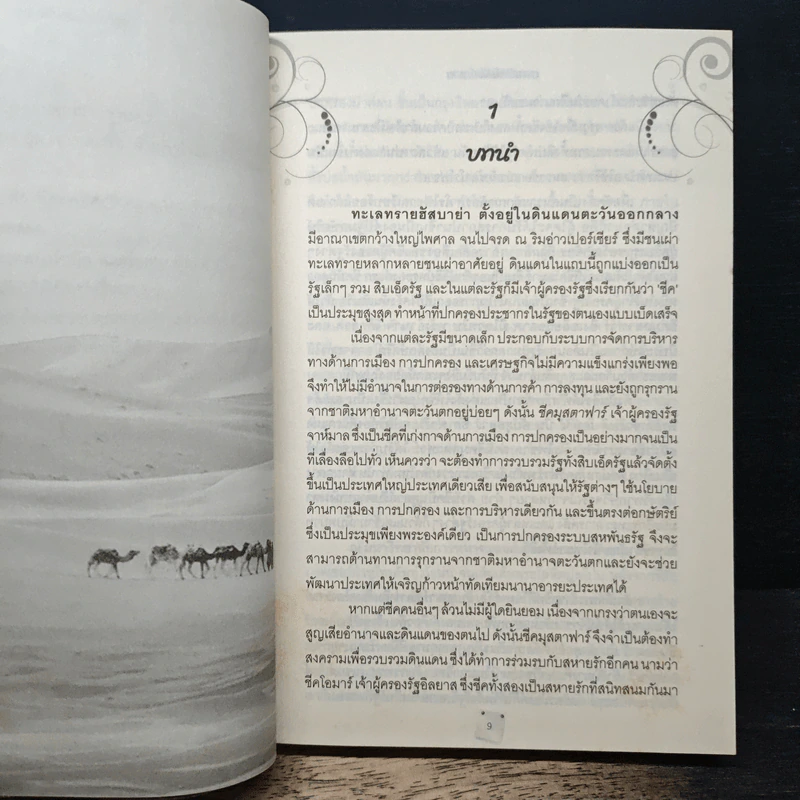 1
บทนำ
ทะเลทรายฮัสบาย่า ตั้งอยู่ในดินแดนตะวันออกกลาง
มีอาณาเขตกว้างใหญ่ไพศาล จนไปจรด ณ ริมอ่าวเปอร์เซียร์ ซึ่งมีชนเผ่า
ทะเลทรายหลากหลายชนเผ่าอาศัยอยู่ ดินแดนในแถบนี้ถูกแบ่งออกเป็น
รัฐเล็กๆ รวม สิบเอ็ดรัฐ และในแต่ละรัฐก็มีเจ้าผู้ครองรัฐซึ่งเรียกกันว่า ‘ชีค’
เป็นประมุขสูงสุด ทำหน้าที่ปกครองประชากรในรัฐของตนเองแบบเบ็ดเสร็จ
เนื่องจากแต่ละรัฐมีขนาดเล็ก ประกอบกับระบบการจัดการบริหาร
ทางด้านการเมือง การปกครอง และเศรษฐกิจไม่มีความแข็งแกร่งเพียงพอ
จึงทำให้ไม่มีอำนาจในการต่อรองทางด้านการค้า การลงทุน และยังถูกรุกราน
จากชาติมหาอำนาจตะวันตกอยู่บ่อยๆ ดังนั้น ชีคมุสตาฟาร์ เจ้าผู้ครองรัฐ
จาห์มาล ซึ่งเป็นชีคที่เก่งกาจด้านการเมือง การปกครองเป็นอย่างมากจนเป็น
ที่เลื่องลือไปทั่ว เห็นควรว่า จะต้องทำการรวบรวมรัฐทั้งสิบเอ็ดรัฐแล้วจัดตั้ง
ขึ้นเป็นประเทศใหญ่ประเทศเดียวเสีย เพื่อสนับสนุนให้รัฐต่างๆ ใช้นโยบาย
ด้านการเมือง การปกครอง และการบริหารเดียวกัน และขึ้นตรงต่อกษัตริย์
ซึ่งเป็นประมุขเพียงพระองค์เดียว เป็นการปกครองระบบสหพันธรัฐ จึงจะ
สามารถต้านทานการรุกรานจากชาติมหาอำนาจตะวันตกและยังจะช่วย
พัฒนาประเทศให้เจริญก้าวหน้าทัดเทียมนานาอารยะประเทศได้
หากแต่ชีคคนอื่นๆ ล้วนไม่มีผู้ใดยินยอม เนื่องจากเกรงว่าตนเองจะ
สูญเสียอำนาจและดินแดนของตนไป ดังนั้นชีคมุสตาฟาร์ จึงจำเป็นต้องทำ
สงครามเพื่อรวบรวมดินแดน ซึ่งได้ทำการร่วมรบกับสหายรักอีกคน นามว่า
ชีคโอมาร์ เจ้าผู้ครองรัฐอิลยาส ซึ่งชีคทั้งสองเป็นสหายรักที่สนิทสนมกันมา
9